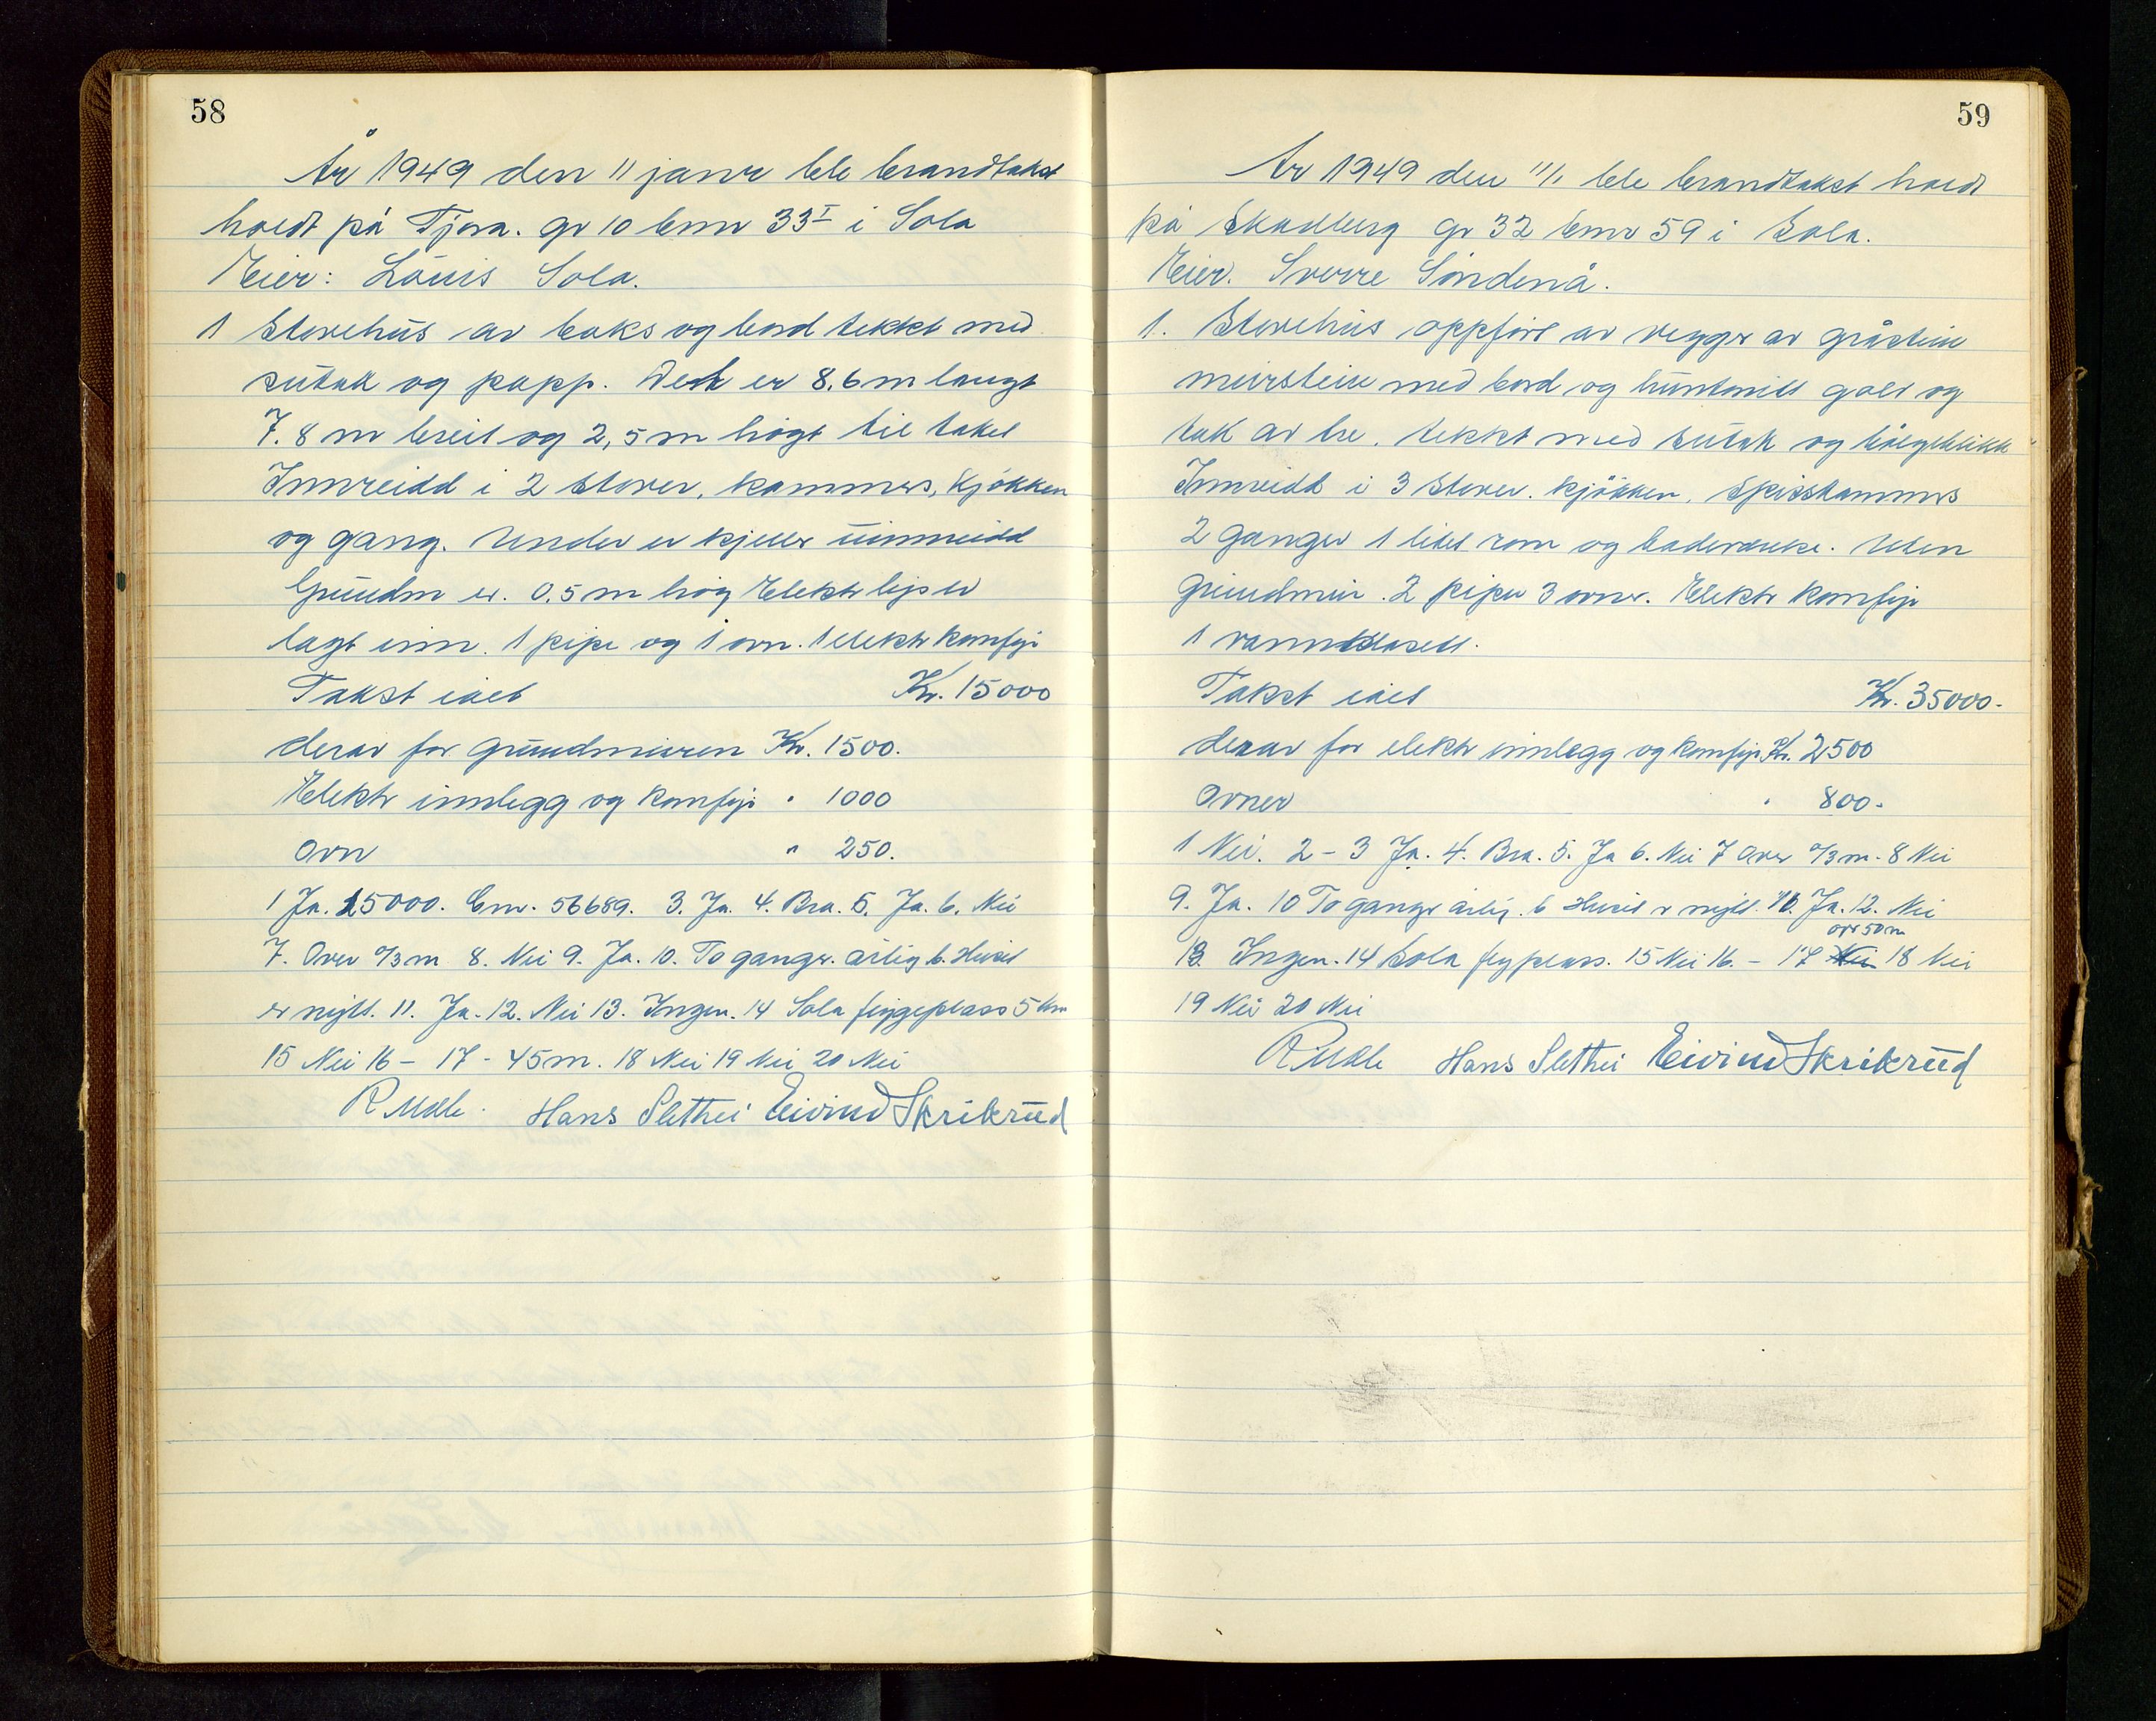 58
År 1949 den 11 janr ble branntakst
holdt på Tjora. gr 10 bnr 33 I i Sola
Eier: Louis Sola.
1 Stovehus av boks og bord tekkt med
sutak og papp. Det er 8,6 m langt
7.8 m breit og 2,5 m høgt til taket
Innreidd i 2 stover, kammers, kjøkken
og gang. Under er kjeller uinnreidd
Grundm er 0.5 m høg Elektr lys er
lagt inn. 1 pipe og 1 ovn. 1 elektr komfyr
Takst ialt Kr. 15000
derav for grundmuren Kr. 1500.
Elektr innlegg og komfyr " 1000
Ovn " 250.
1 Ja. 15000. Bnr. 56689. 3. Ja. 4. Bra. 5. Ja. 6. Nei
7. Over 0/3 m 8. Nei 9. Ja. 10. To ganger årlig b. Huset
er nytt. 11. Ja. 12. Nei 13. Ingen. 14 Sola flygeplass 5 km
15 Nei 16 - 17 - 45 m. 18 Nei 19 Nei 20 Nei
R Malle. Hans Slethei Eivind Skrikrud
59
År 1949 den 11/1 ble branntakst holdt
på Skadberg gr 32 bnr 59 i Sola.
Eier. Sverre Sóndenå.
1. Stovehus oppført av vegger av gråstein
murstein med bord og huntonitt golv og
tak av tre. tekkt med sutak og bølgeblikk
Innreidd i 3 stover. kjøkken, spisskammers
2 ganger 1 litet rom og badeværelse. Uten
grundmur. 2 piper 3 ovner. Elektr komfyr
1 vannklosett.
Takst ialt Kr. 35000.
derav for elektr innlegg og komfyr Kr. 2500
Ovner " 800.
1 Nei. 2 - 3 Ja. 4. Bra. 5. Ja 6. Nei 7 Over 0/3 m. 8 Nei
9. Ja. 10 To ganger årlig. b Huset er nytt. 11. Ja. 12. Nei
over 50 m
13. Ingen. 14 Sola flyplass. 15 Nei 16. - 17 Nei 18 Nei
19 Nei 20 Nei
R Malle Hans Slethei Eivind Skrikrud